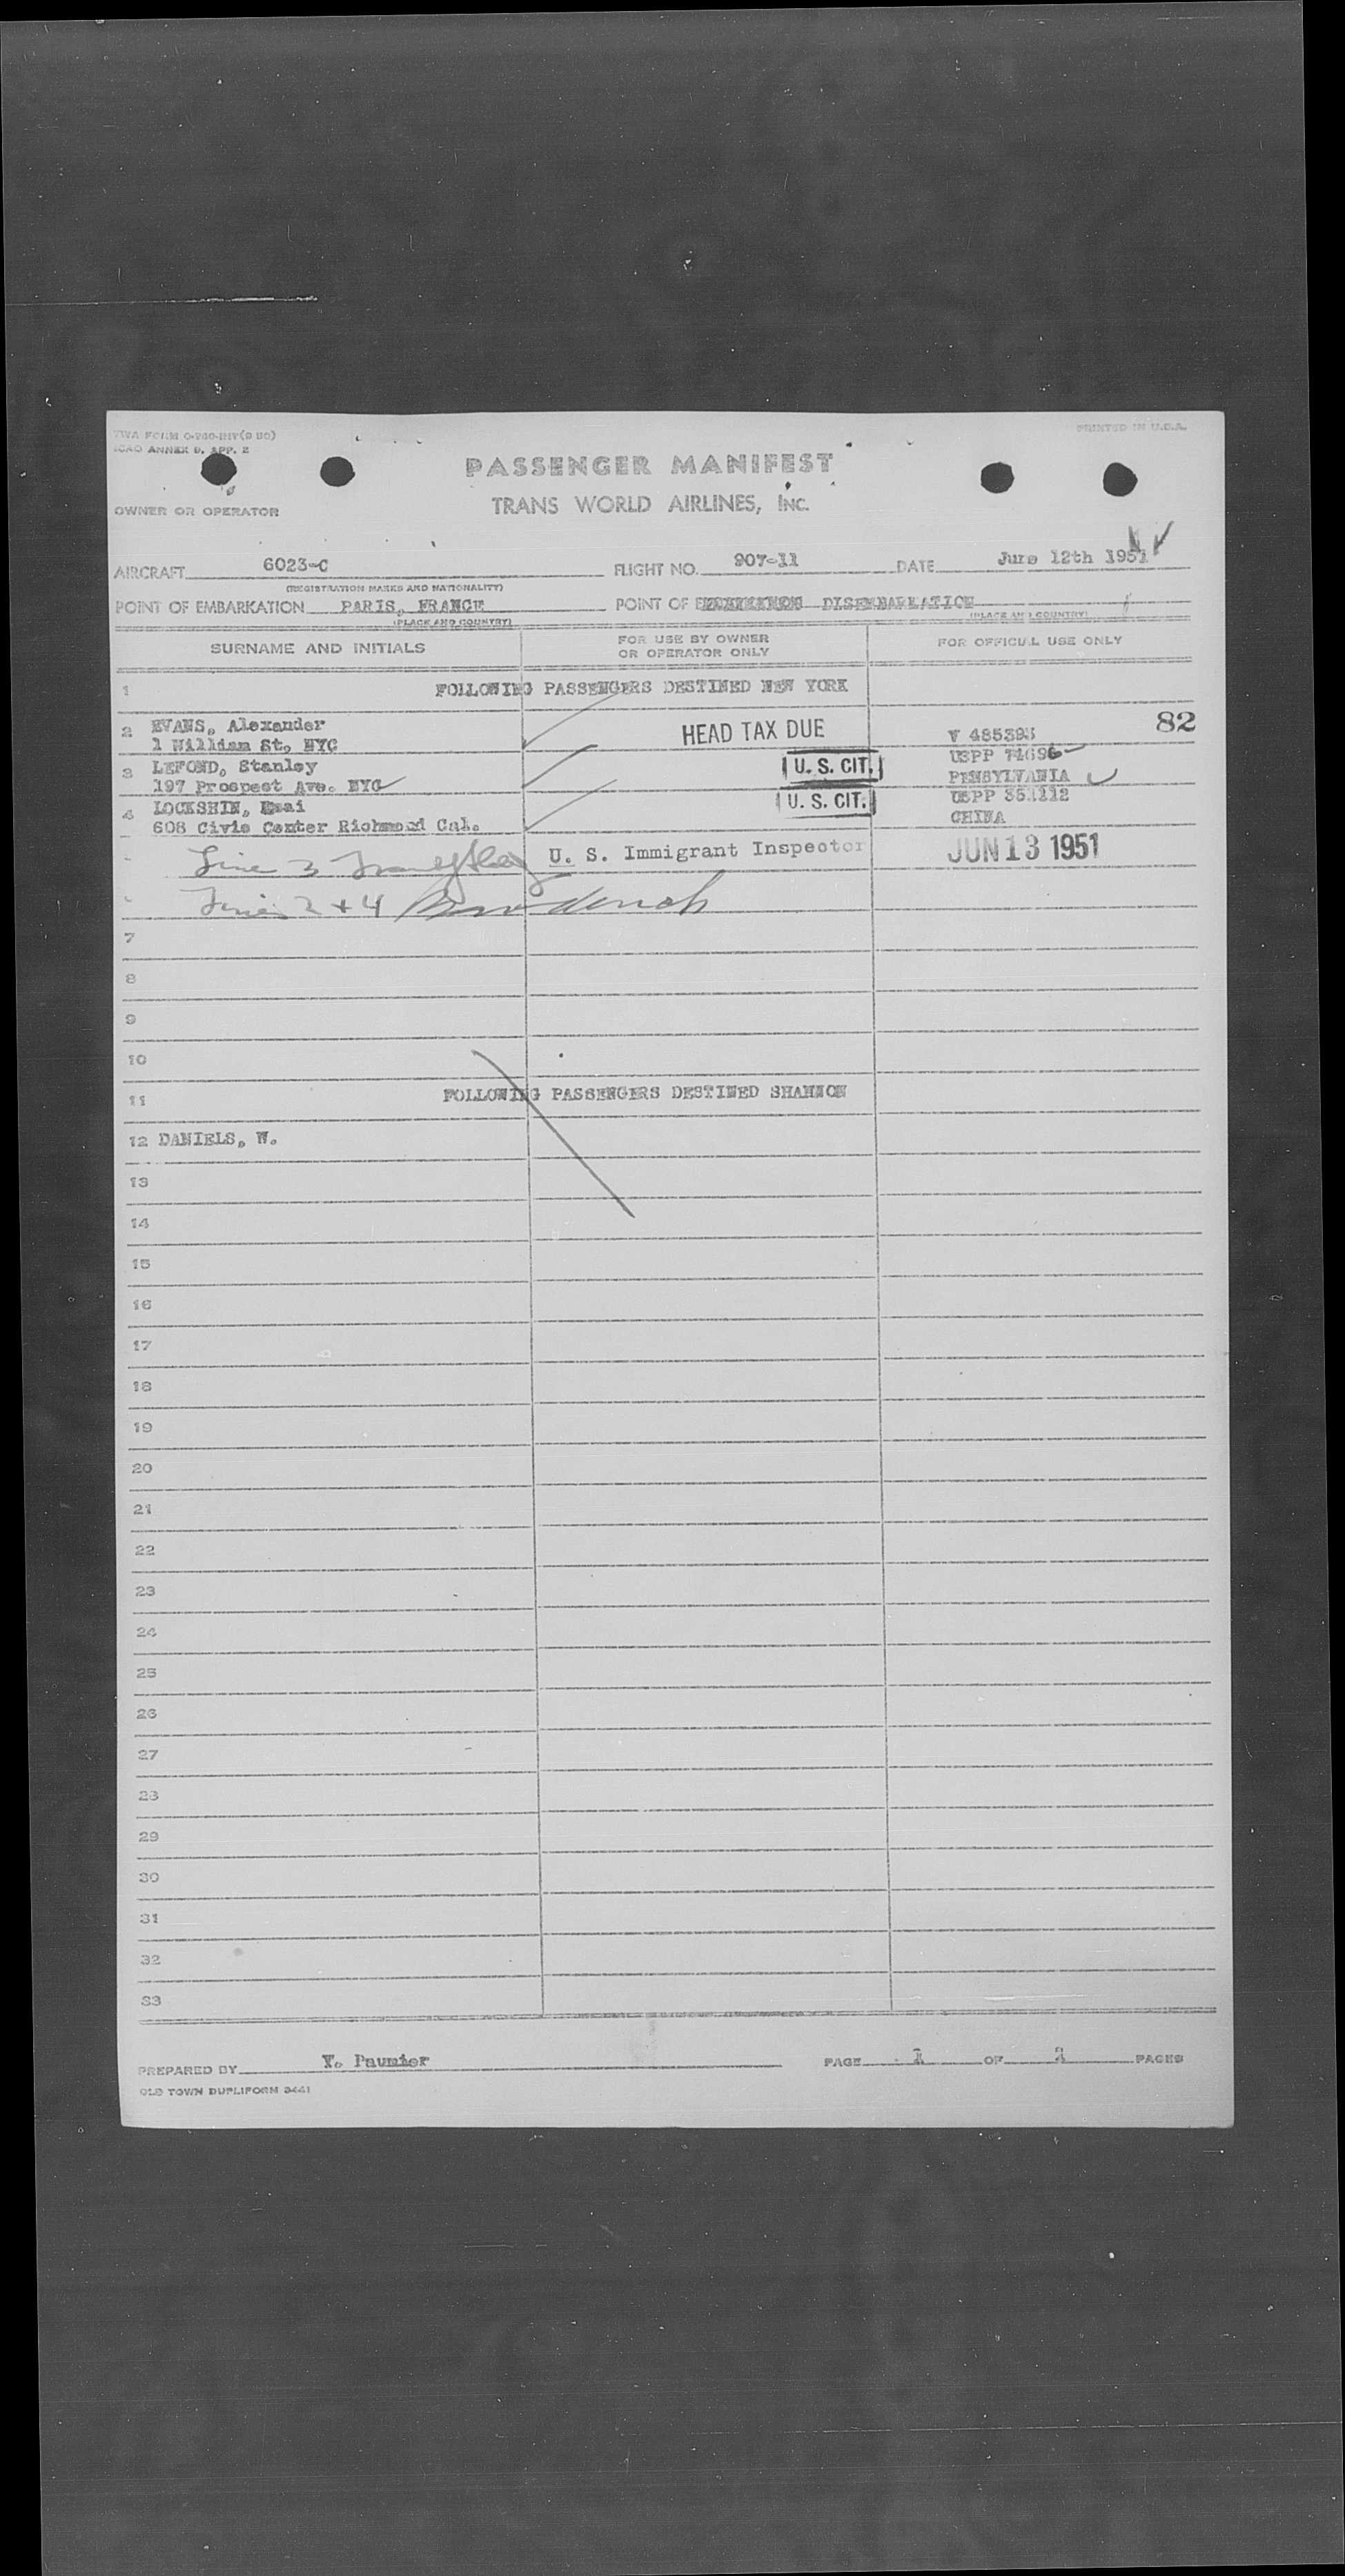 TWA FORM O-240-INT(9 50)
PRINTED IN U.S.A.
ICAO ANNEX 9, APP. 2
PASSENGER MANIFEST
OWNER OR OPERATOR
TRANS WORLD AIRLINES, INC.
AIRCRAFT 6023-C FLIGHT NO. 907-11 DATE June 12th 1951
(REGISTRATION MARKS AND NATIONALITY)
POINT OF EMBARKATION PARIS, FRANCE POINT OF DISEMBARKATION
(PLACE AND COUNTRY) (PLACE AND COUNTRY)
SURNAME AND INITIALS FOR USE BY OWNER OR OPERATOR ONLY FOR OFFICIAL USE ONLY
1 FOLLOWING PASSENGERS DESTINED NEW YORK
2 EVANS, Alexander HEAD TAX DUE 82
1 William St, NYC V 485393
3 LEFOND, Stanley U. S. CIT. USPP 74696
197 Prospect Ave. NYC PENSYLVANIA
4 LOCKSHIN, U. S. CIT. USPP 351112
608 Civic Center Richmond Cal. CHINA
Line 3 U. S. Immigrant Inspector JUN 13 1951
Lines 2 + 4
7
8
9
10
11 FOLLOWING PASSENGERS DESTINED SHANNON
12 DANIELS, W.
13
14
15
16
17
18
19
20
21
22
23
24
25
26
27
28
29
30
31
32
33
PREPARED BY Y. Paumier PAGE 1 OF 1 PAGES
OLD TOWN DUPLIFORM 3441